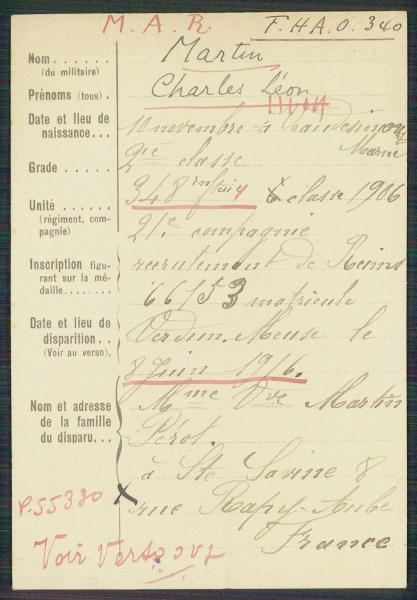 M.A.R.
F.H.A.O. 340
Nom ...... Martin
(du militaire)
Prénoms (tous) . Charles Léon
Date et lieu de
naissance... 10 novembre à
Marne
Grade ..... 2me classe
Unité ...... 348 classe 1906
(régiment, com-
pagnie) 21e compagnie
Inscription figu-
rant sur la mé-
daille........ recrutement de Reims
66153 matricule
Date et lieu de
disparition. . Verdun. Meuse le
(Voir au verso). 8 Juin 1916.
Nom et adresse
de la famille
du disparu... Mme Vve Martin
Pérot.
à Ste Savine 8
P.55330 X rue Rapy-Aube
Voir Verso France